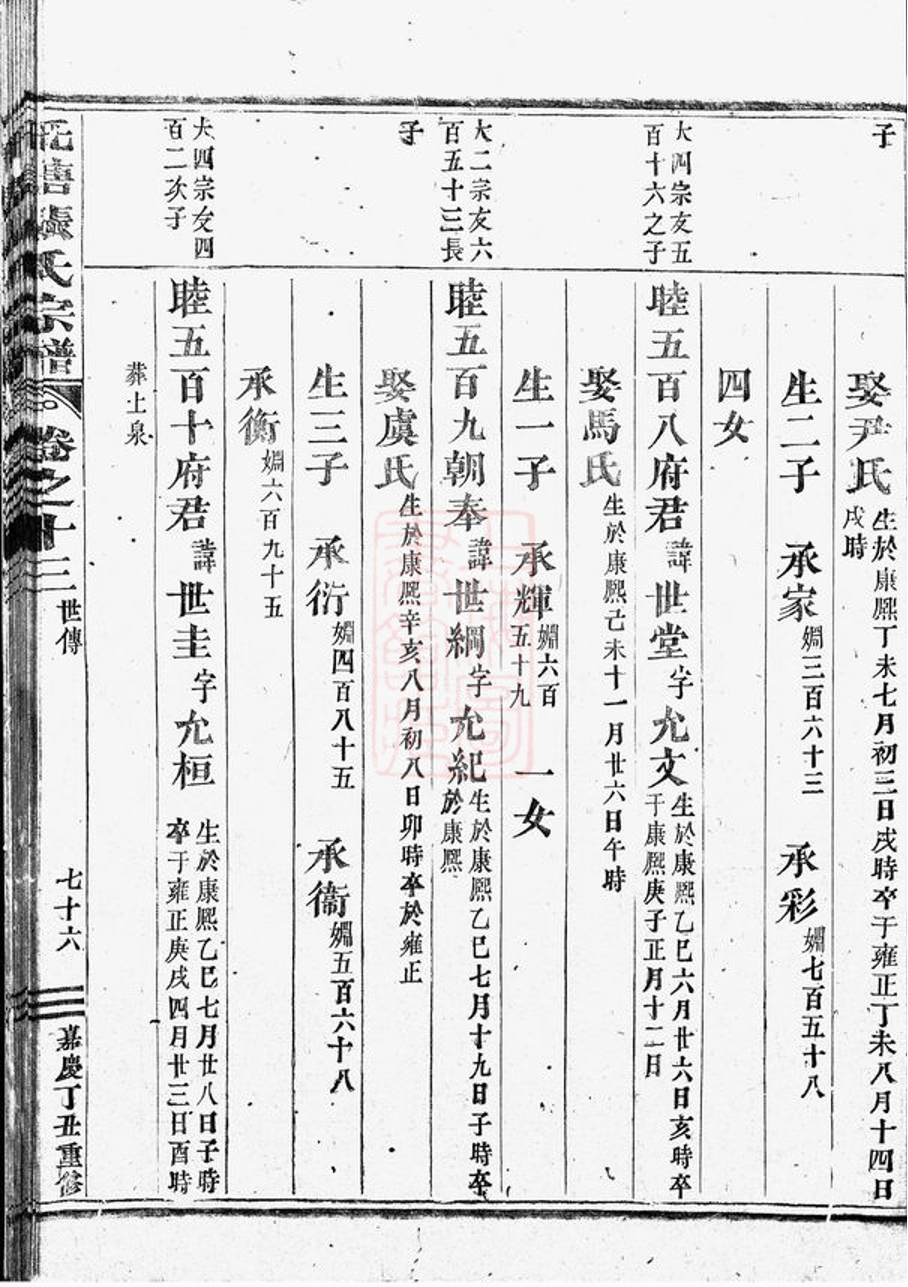 子
娶尹氏 生於康熙丁未七月初三日戌時卒于雍正丁未八月十四日
戌時
生二子 承家 婣三百六十三 承彩 婣七百五十八
四女
大四宗友五
百十六之子
睦五百八府君 諱 世堂 字 允文 生於康熙乙巳六月廿六日亥時卒
于康熙庚子正月十二日
娶馬氏 生於康熙己未十一月廿六日午時
生一子 承輝 婣六百
五十九 一女
大二宗友六
百五十三長
子
睦五百九朝奉 諱 世綱 字 允紀 生於康熙乙巳七月十九日子時卒
於康熙
娶虞氏 生於康熙辛亥八月初八日卯時卒於雍正
生三子 承衍 婣四百八十五 承衞 婣五百六十八
承衡 婣六百九十五
大四宗友四
百二次子
睦五百十府君 諱 世圭 字 允桓 生於康熙乙巳七月廿八日子時
卒于雍正庚戌四月廿三日酉時
葬上泉
塘張氏宗譜 卷之十三 世傳 七十六 嘉慶丁丑重修